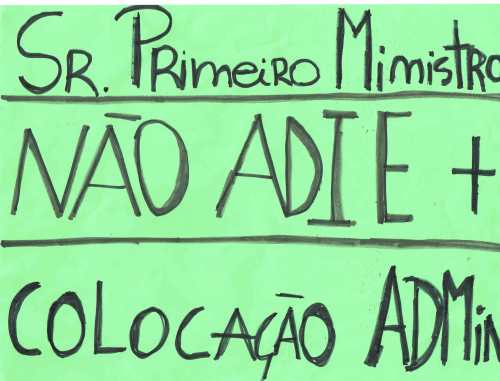 Sr. Primeiro Mimistro
NÃO ADIE +
COLOCAÇÃO ADMin